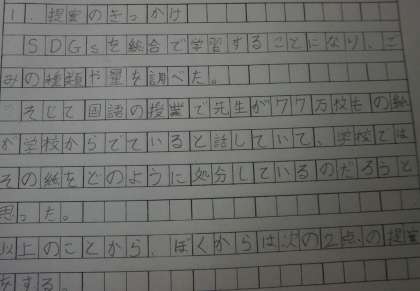 1. 提案のきっかけ
SDGsを総合で学習することになり、ご
みの種類や量を調べた。
そして国語の授業で先生が77万枚もの紙
が学校からでていると話していて、学校では
その紙をどのように処分しているのだろうと
思った。
以上のことから、ぼくからは次の2点の提案
をする。